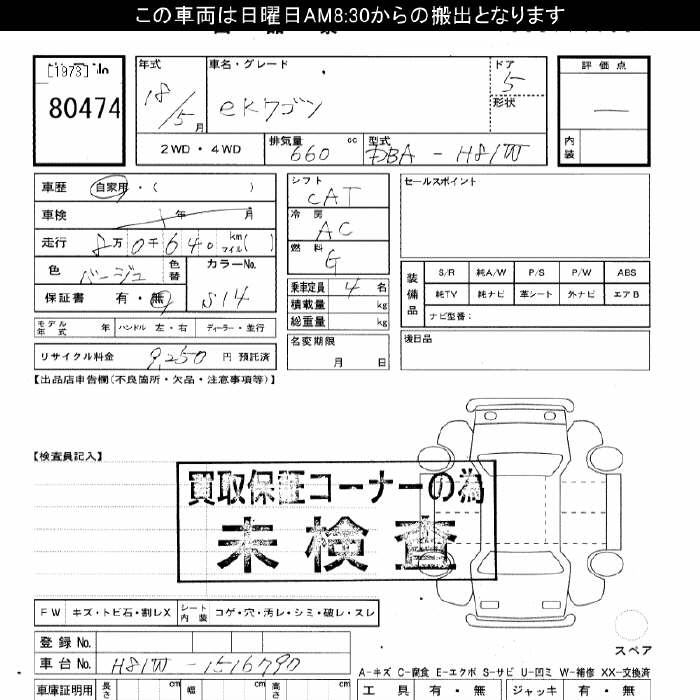 この車両は日曜日AM8:30からの搬出となります
[1973] No
80474
年式 車名・グレード ドア 評価点
18/5月 eKワゴン 5
形状
2WD・4WD 排気量 660 cc 型式 DBA - H81W 内装
車歴 自家用・( )
車検 年 月
走行 8万0千640 km マイル ( )
色 ベージュ 色替 カラーNo.
保証書 有・無 S14
モデル年式 年 ハンドル 左・右 ディーラー・並行
リサイクル料金 9,250 円 預託済
シフト CAT
冷房 AC
燃料 G
乗車定員 4 名
積載量 kg
総重量 kg
名変期限
月 日
セールスポイント
装備品 S/R 純A/W P/S P/W ABS
純TV 純ナビ 革シート 外ナビ エアB
ナビ型番:
後日品
【出品店申告欄(不良箇所・欠品・注意事項等)】
【検査員記入】
買取保証コーナーの為
未検査
FW キズ・トビ石・割レX シート内装 コゲ・穴・汚レ・シミ・破レ・スレ
スペア
登録 No.
車台 No. H81W-1516790
A-キズ C-腐食 E-エクボ S-サビ U-凹ミ W-補修 XX-交換済
車庫証明用 長さ cm 幅 cm 高さ cm 工具 有・無 ジャッキ 有・無